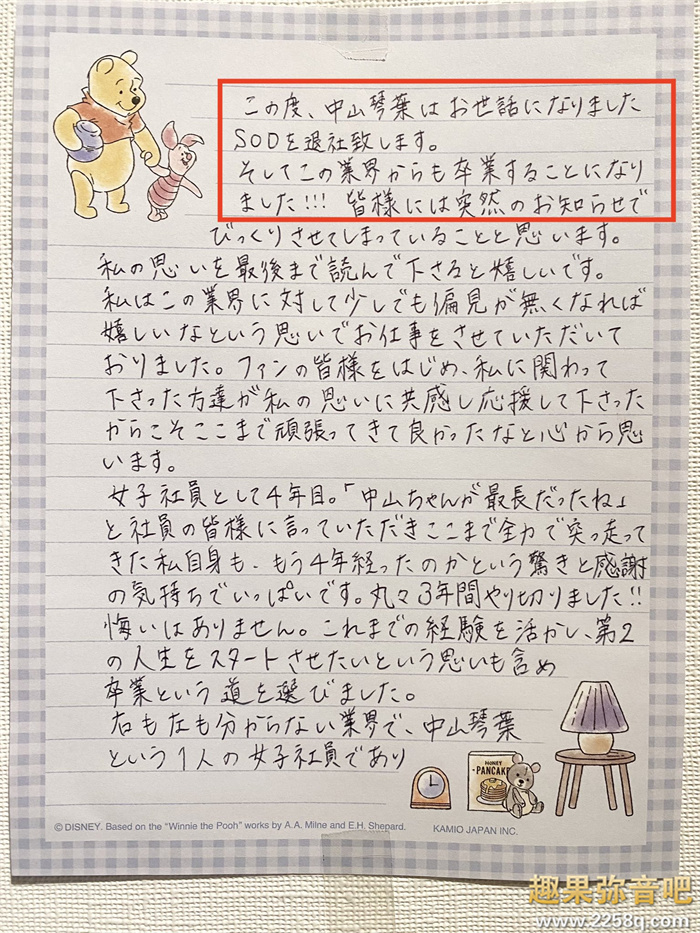 この度、中山琴葉はお世話になりました
SODを退社致します。
そしてこの業界からも卒業することになり
ました!!! 皆様には突然のお知らせで
びっくりさせてしまっていることと思います。
私の思いを最後まで読んで下さると嬉しいです。
私はこの業界に対して少しでも偏見が無くなれば
嬉しいなという思いでお仕事をさせていただいて
おりました。ファンの皆様をはじめ、私に関わって
下さった方達が私の思いに共感し応援して下さった
からこそここまで頑張ってきて良かったなと心から思
います。
女子社員として4年目。「中山ちゃんが最長だったね」
と社員の皆様に言っていただきここまで全力で突っ走って
きた私自身も、もう4年経ったのかという驚きと感謝
の気持ちでいっぱいです。丸々3年間やり切りました!!
悔いはありません。これまでの経験を活かし、第2
の人生をスタートさせたいという思いも含め
卒業という道を選びました。
右も左も分からない業界で、中山琴葉
という1人の女子社員であり
HONEY
PANCAKE
©DISNEY. Based on the "Winnie the Pooh" works by A.A. Milne and E.H. Shepard. KAMIO JAPAN INC.
趣果弥音吧
www.2258q.com